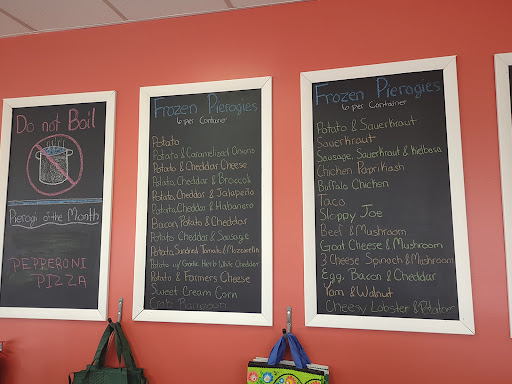 Do not Boil
Pierogi of the Month
PEPPERONI
PIZZA
Frozen Pierogies
6 per Container
Potato
Potato & Caramelized Onions
Potato & Cheddar Cheese
Potato, Cheddar & Broccoli
Potato, Cheddar & Jalapeño
Potato, Cheddar & Habanero
Bacon, Potato & Cheddar
Potato Cheddar & Sausage
Potato, Sundried Tomato, & Mozzarella
Potato w/ Garlic Herb White Cheddar
Potato & Farmers Cheese
Sweet Cream Corn
Crab Rangoon
Frozen Pierogies
6 per Container
Potato & Sauerkraut
Sauerkraut
Sausage, Sauerkraut & Kielbasa
Chicken Paprikash
Buffalo Chicken
Taco
Sloppy Joe
Beef & Mushroom
Goat Cheese & Mushroom
3 Cheese Spinach & Mushroom
Egg, Bacon & Cheddar
Yam & Walnut
Cheesy Lobster & Potato